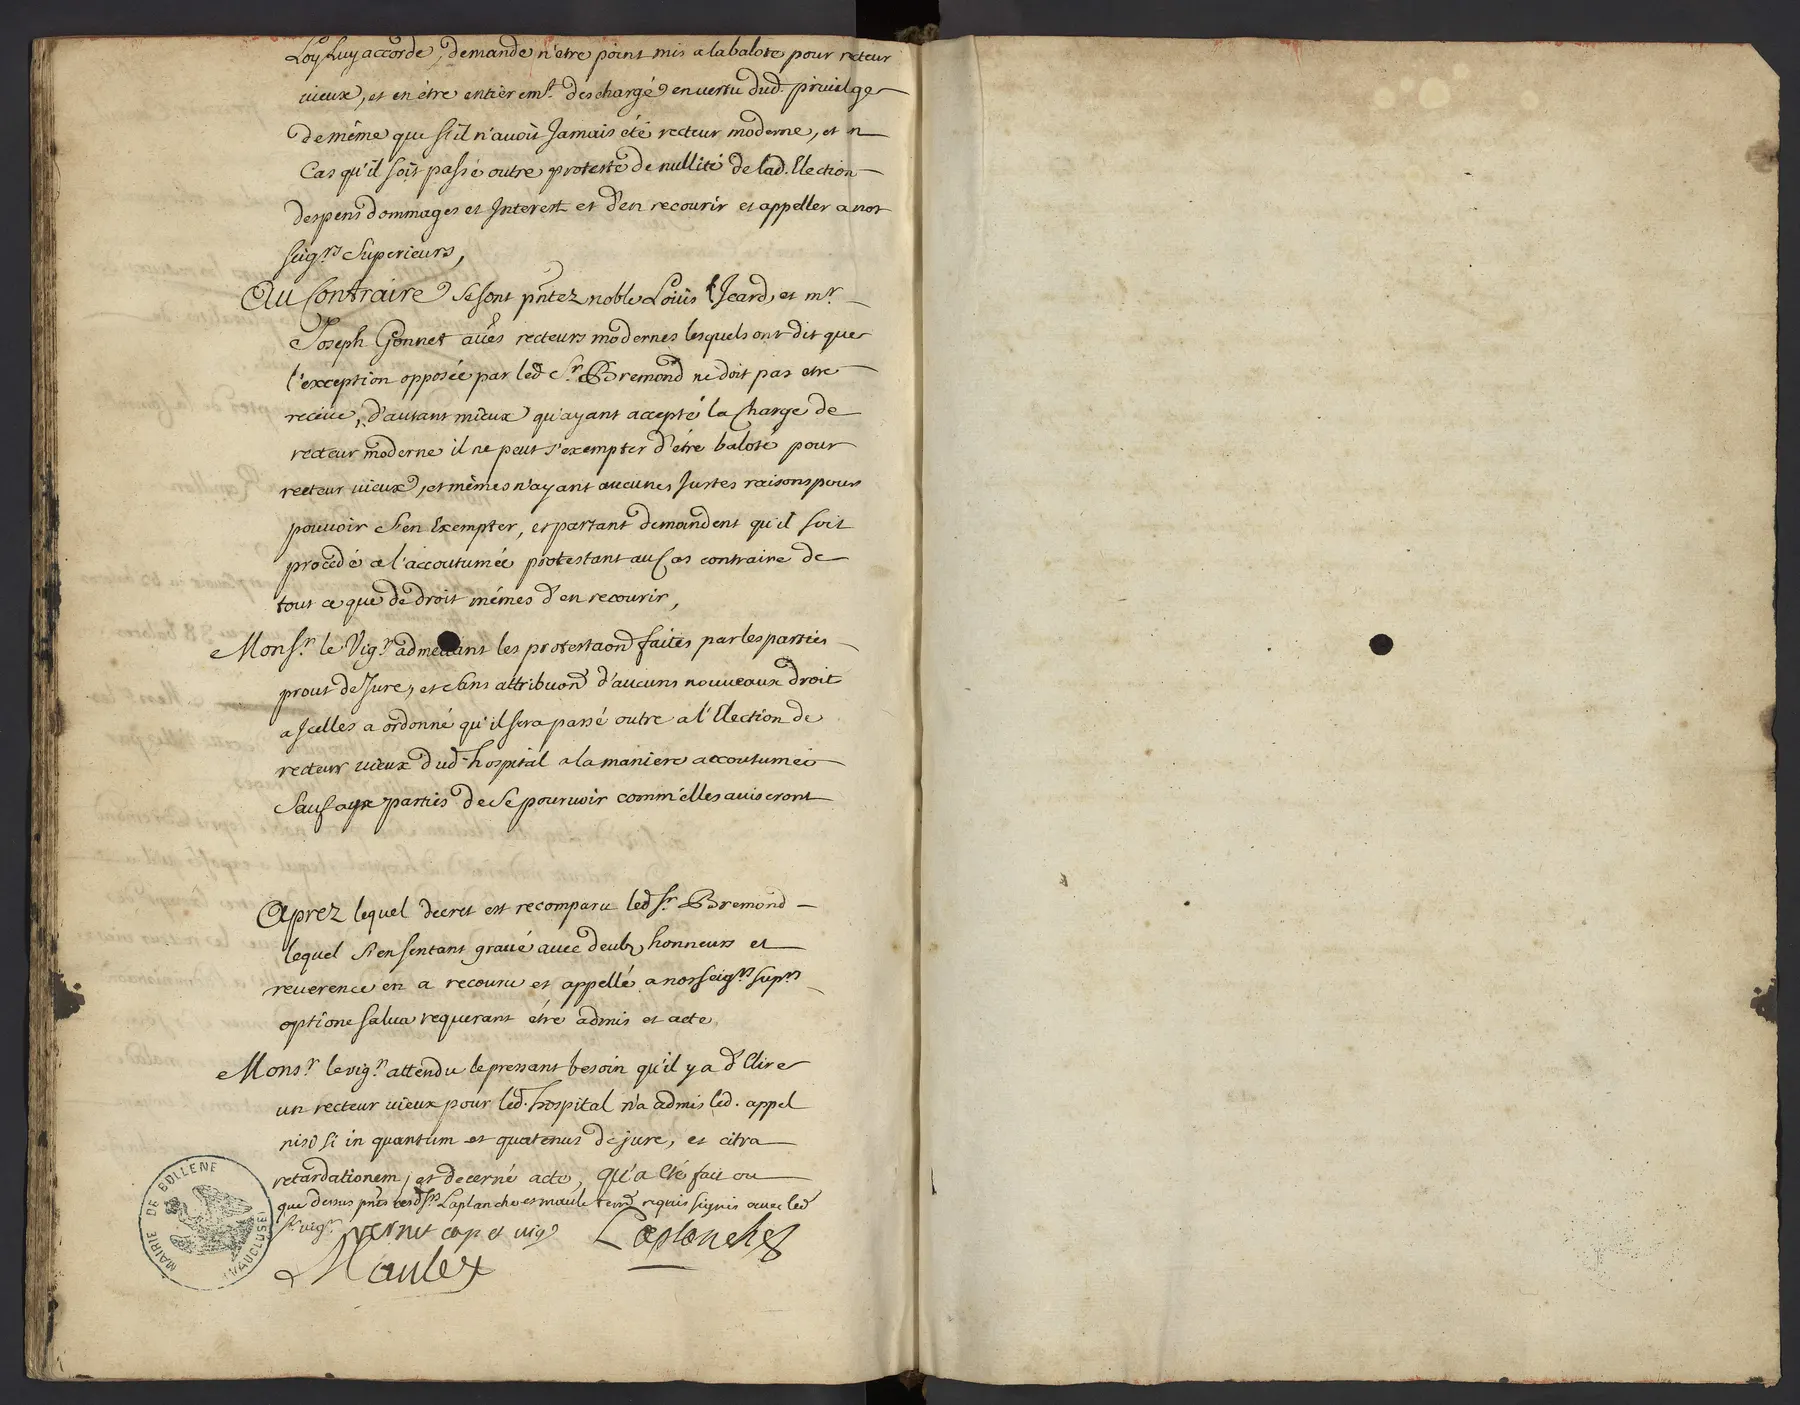 Loy Luy accorde, demande n'etre point mis a la balote pour recteur
vieux, et en être entierem.t deschargé en vertu dud. privilge
de même que s'il n'avoit Jamais été recteur moderne, et n
Cas qu'il soit passé outre proteste de nullité de lad. Election
despens dommages et Interest et d'en recourir et appeller a nos
seig.rs Superieurs,
Au Contraire se sont pntez noble Loüis Icard, et m.r
Joseph Gonnet recteurs modernes lesquels ont dit que
l'exception opposée par led S.r Bremond ne doit pas etre
recüe, d'autant mieux qu'ayant accepté la Charge de
recteur moderne il ne peut s'exempter d'étre baloté pour
recteur vieux, et mêmes n'ayant aucunes Justes raisons pour
pouvoir s'en Exempter, et partant demandent qu'il soit
procédé a l'accoutumée protestant au Cas contraire de
tout ce que de droit mémes d'en recourir,
Mons.r le Vig.r admettant les protestaon faites par les parties
prout de Jure, et sans attribuon d'aucuns nouveaux droit
a Icelles a ordonné qu'il sera passé outre a l'Election de
recteur vieux dud hospital a la maniere accoutumée
Sauf aux parties de se pourvoir comm'elles aviseront
Aprez lequel decret est recomparu led S.r Bremond
lequel s'en sentant gravé avec deubz honneurs et
reverence en a recouru et appellé a nosseig.rs sup.rs
optione salva requerant étre admis et acte
Mons.r le vig.r attendu le pressant besoin qu'il y a d'Elire
un recteur vieux pour led. hospital n'a admis led. appel
nisi si in quantum et quatenus de jure, et citra
retardationem, et decerné acte, qu'a eté fait ou
que dessus pnts lesd S.rs Laplanche et maule requis signés avec led
S.r vig.r
vernet cap et vig
Laplanche
Maule
MAIRIE DE BOLLENE
(VAUCLUSE)